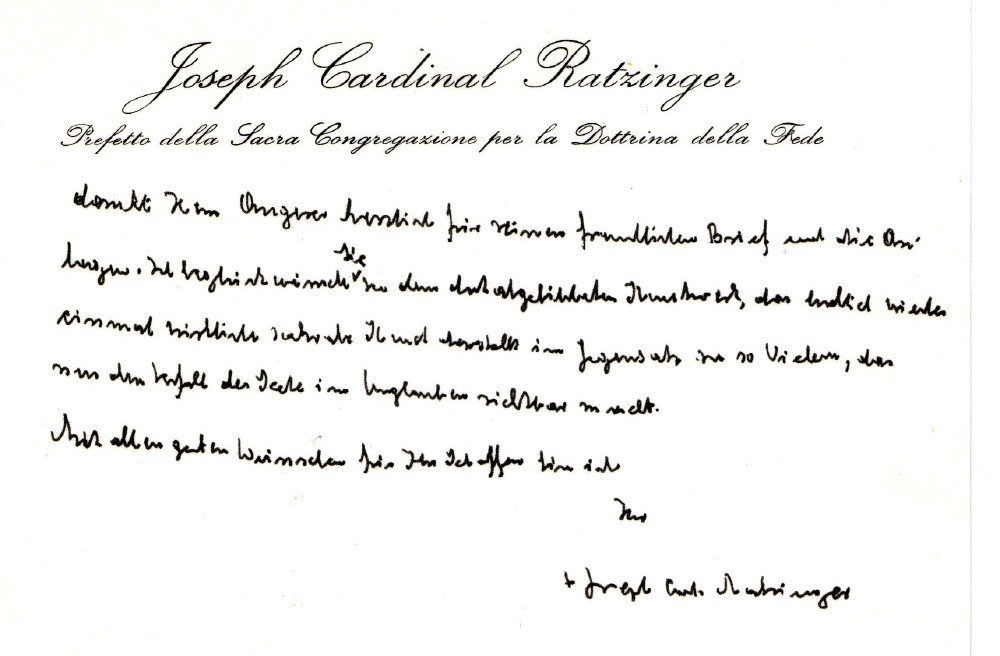 Joseph Cardinal Ratzinger
Prefetto della Sacra Congregazione per la Dottrina della Fede
dankt Herrn herzlich für seinen freundlichen Brief und die An-
lagen. Ich beglückwünsche Sie zu dem dort abgebildeten Kunstwerk, das endlich wieder
einmal wirklich sakrale Kunst darstellt im Gegensatz zu so Vielem, das
nur den Verfall der Seele im Unglauben sichtbar macht.
Mit allen guten Wünschen für Ihr Schaffen bin ich
Ihr
+ Joseph Card. Ratzinger